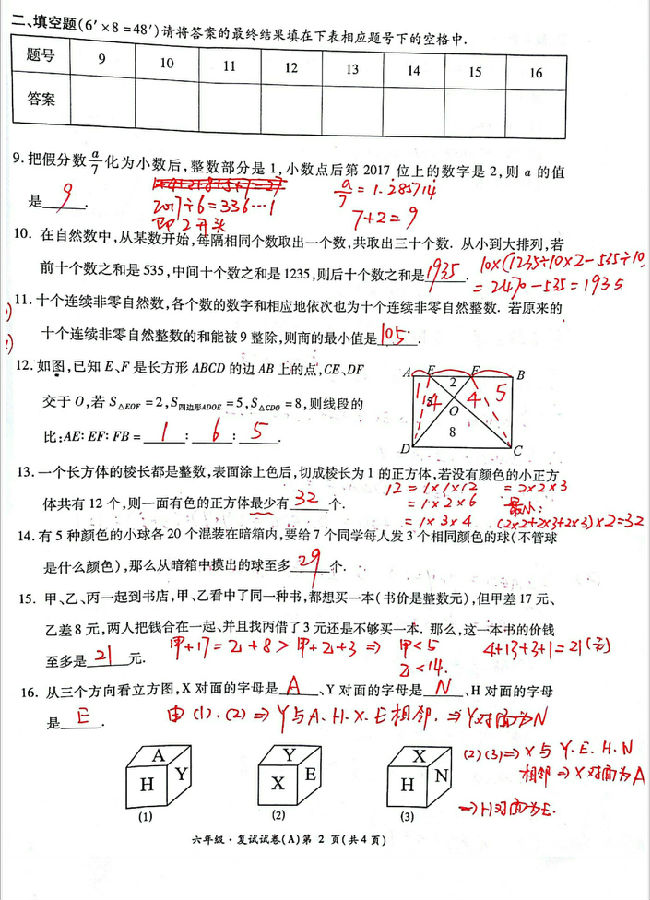 二、填空题(6′×8=48′)请将答案的最终结果填在下表相应题号下的空格中.
题号 9 10 11 12 13 14 15 16
答案
9. 把假分数a/7化为小数后,整数部分是1,小数点后第2017位上的数字是2,则a的值
是 9 .
2017÷6=336…1
即2开头
a/7=1.285714
7+2=9
10. 在自然数中,从某数开始,每隔相同个数取出一个数,共取出三十个数. 从小到大排列,若
前十个数之和是535,中间十个数之和是1235,则后十个数之和是 1935 .
10×(1235÷10×2-535÷10)
=2470-535=1935
11. 十个连续非零自然数,各个数的数字和相应地依次也为十个连续非零自然整数. 若原来的
十个连续非零自然整数的和能被9整除,则商的最小值是 105 .
12. 如图,已知E、F是长方形ABCD的边AB上的点,CE、DF
交于O,若S△EOF=2,S四边形ADOE=5,S△CDO=8,则线段的
比:AE:EF:FB= 1 : 6 : 5 .
A E F B
2
1 4 4 5
5 O
8
D C
13. 一个长方体的棱长都是整数,表面涂上色后,切成棱长为1的正方体,若没有颜色的小正方
体共有12个,则一面有色的正方体最少有 32 个.
12=1×1×12 =2×2×3
=1×2×6 最小:
=1×3×4 (2×2+2×3+2×3)×2=32
14. 有5种颜色的小球各20个混装在暗箱内,要给7个同学每人发3个相同颜色的球(不管球
是什么颜色),那么从暗箱中摸出的球至多 29 个.
15. 甲、乙、丙一起到书店,甲、乙看中了同一种书,都想买一本(书价是整数元),但甲差17元、
乙差8元,两人把钱合在一起、并且找丙借了3元还是不够买一本. 那么,这一本书的价钱
至多是 21 元.
甲+17=乙+8>甲+乙+3⇒ 甲<5
乙<14.
4+13+3+1=21(元)
16. 从三个方向看立方图,X对面的字母是 A 、Y对面的字母是 N 、H对面的字母
是 E .
由(1).(2)⇒Y与A.H.X.E相邻.⇒Y对面为N
A H Y
(1)
Y X E
(2)
X H N
(3)
(2)(3)⇒X与Y.E.H.N
相邻⇒X对面为A
⇒H对面为E.
六年级·复试试卷(A)第2页(共4页)